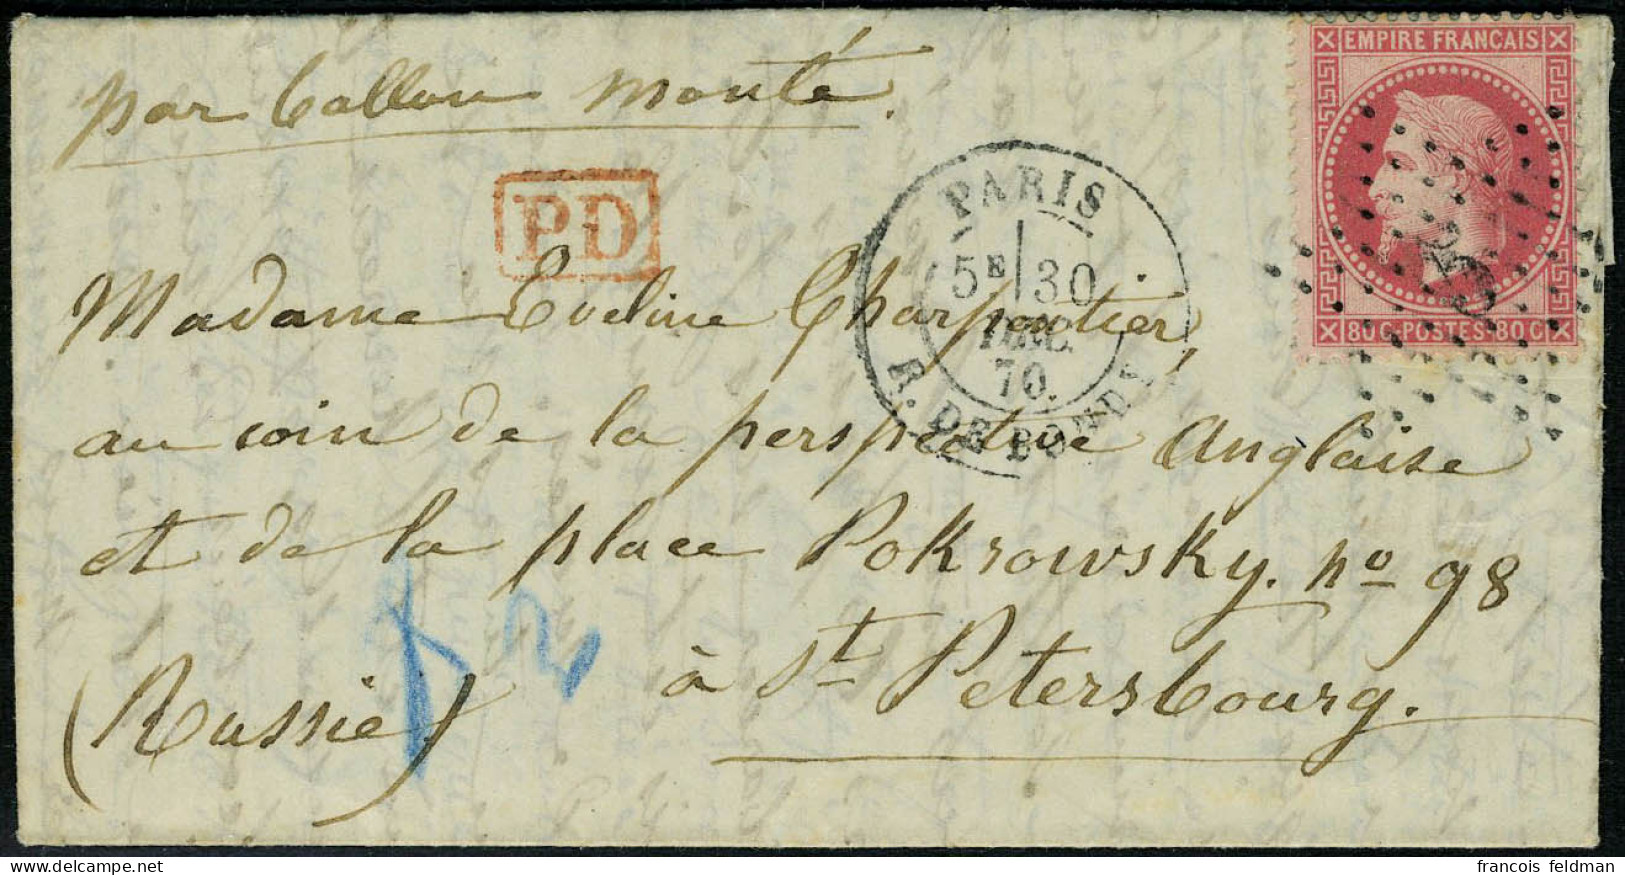 par Ballon monté.
EMPIRE FRANCAIS
80 C POSTES 80 C
PD
PARIS
5E 30
DEC.
70.
R. DE BONDY
Madame Eveline Charpentier,
au coin de la perspective Anglaise
et de la place Pokrowsky. no 98
à St Petersbourg.
(Russie)
francois feldman